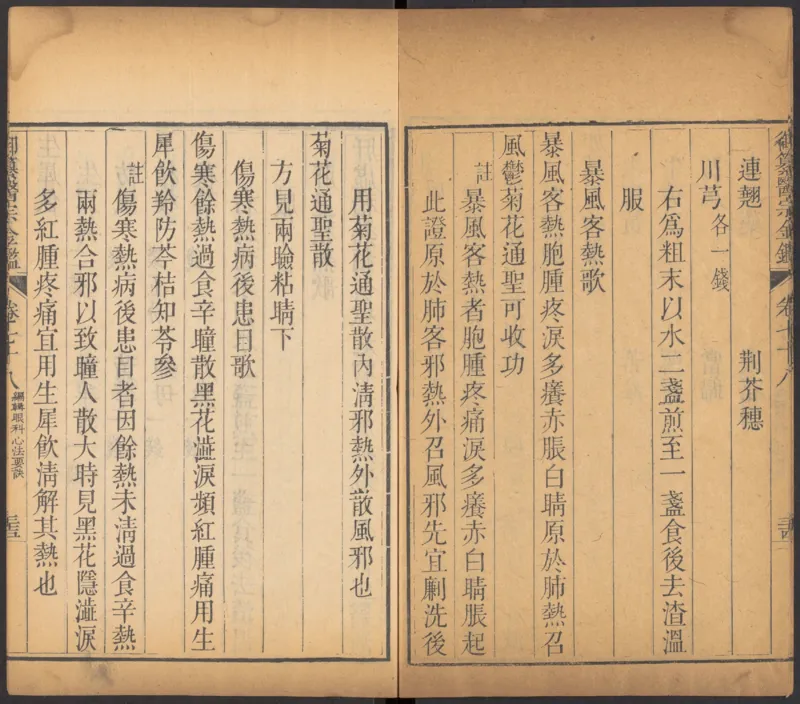 御纂醫宗金鑑 卷七十八
連翹 荆芥穗
川芎各一錢
右爲粗末以水二盞煎至一盞食後去渣溫
服
暴風客熱歌
暴風客熱胞腫疼淚多癢赤脹白睛原於肺熱召
風鬱菊花通聖可收功
註暴風客熱者胞腫疼痛淚多癢赤白睛脹起
此證原於肺客邪熱外召風邪先宜劆洗後
用菊花通聖散內淸邪熱外散風邪也
菊花通聖散
方見兩瞼粘睛下
傷寒熱病後患目歌
傷寒餘熱過食辛瞳散黑花澁淚頻紅腫痛用生
犀飲羚防芩桔知苓參
註傷寒熱病後患目者因餘熱未淸過食辛熱
兩熱合邪以致瞳人散大時見黑花隱澁淚
多紅腫疼痛宜用生犀飲淸解其熱也
御纂醫宗金鑑 卷七十八 編輯眼科心法要訣